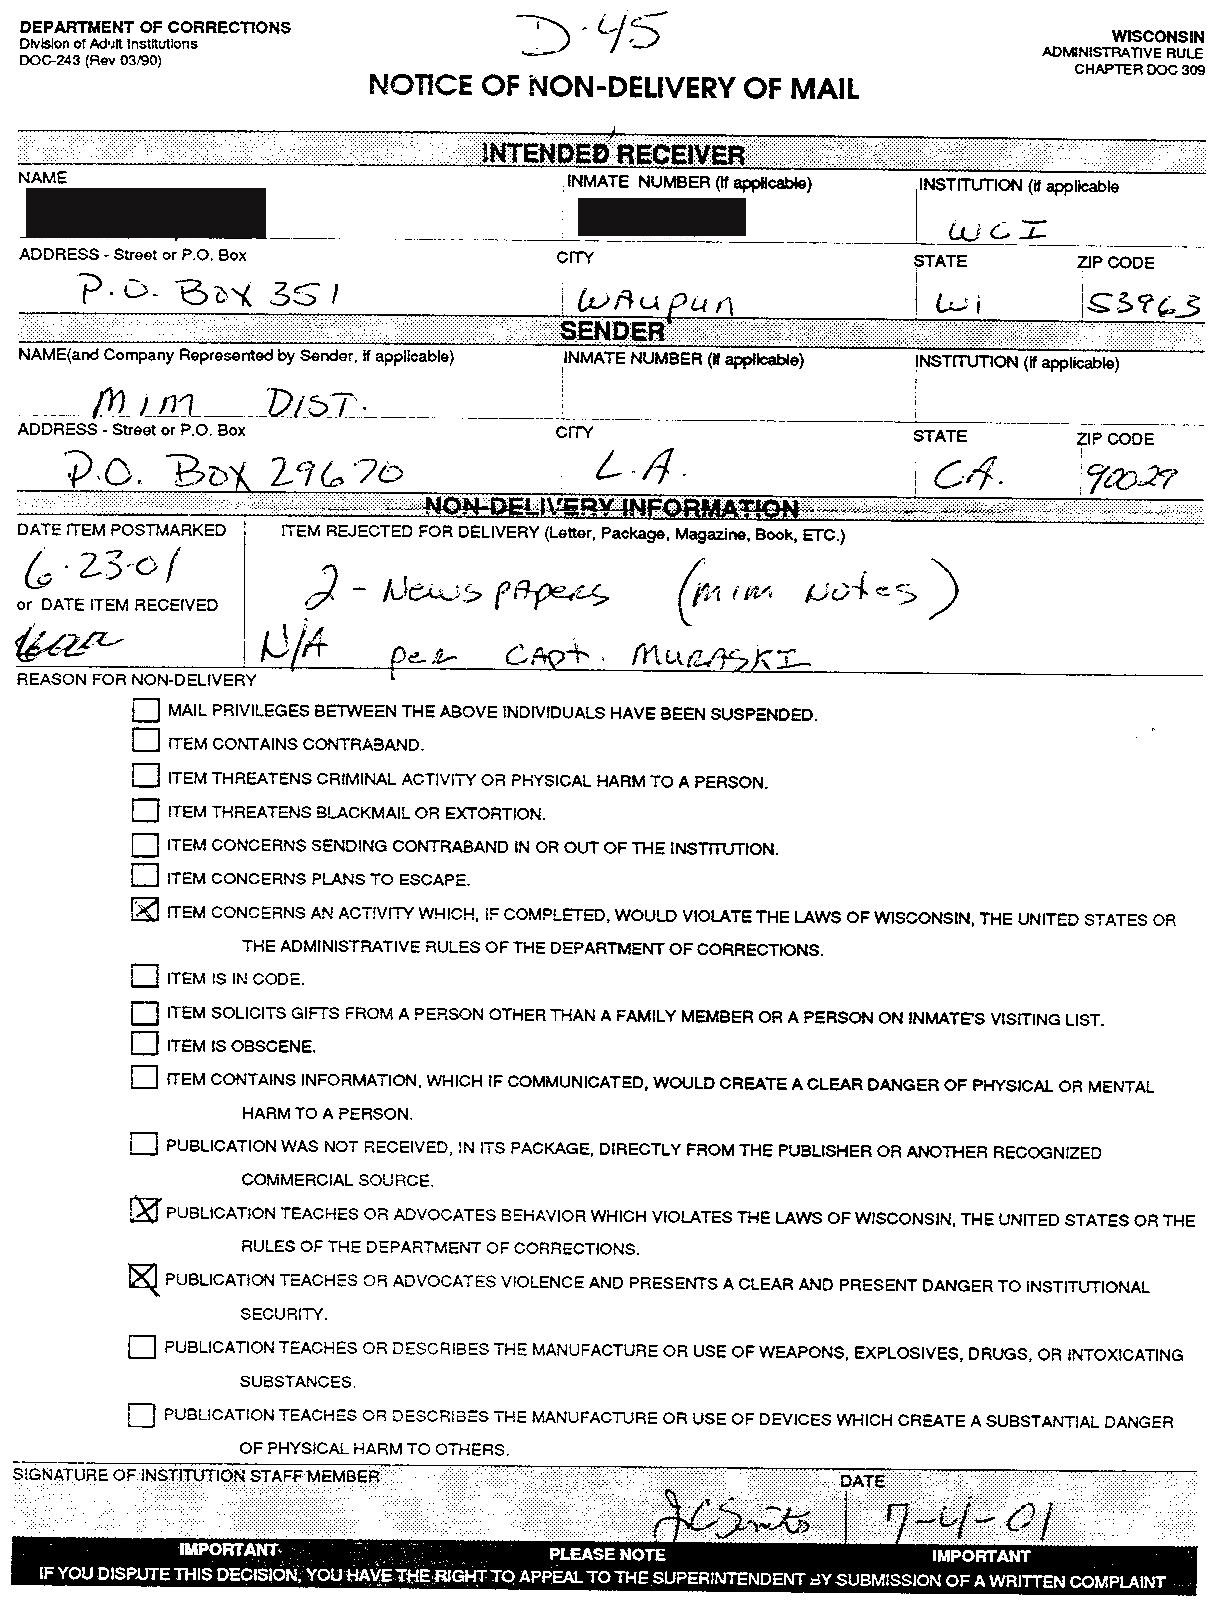 D-45
DEPARTMENT OF CORRECTIONS
Division of Adult Institutions
DOC-243 (Rev 03/90)
WISCONSIN
ADMINISTRATIVE RULE
CHAPTER DOC 309
NOTICE OF NON-DELIVERY OF MAIL
INTENDED RECEIVER
NAME INMATE NUMBER (If applicable) INSTITUTION (if applicable
WCI
ADDRESS - Street or P.O. Box CITY STATE ZIP CODE
P.O. Box 351 WAupun Wi 53963
SENDER
NAME(and Company Represented by Sender, if applicable) INMATE NUMBER (If applicable) INSTITUTION (if applicable)
MIM DIST.
ADDRESS - Street or P.O. Box CITY STATE ZIP CODE
P.O. Box 29670 L.A. CA. 90029
NON-DELIVERY INFORMATION
DATE ITEM POSTMARKED ITEM REJECTED FOR DELIVERY (Letter, Package, Magazine, Book, ETC.)
6-23-01 2 - Newspapers (mim Notes)
or DATE ITEM RECEIVED
N/A per CAPt. MURASKI
REASON FOR NON-DELIVERY
MAIL PRIVILEGES BETWEEN THE ABOVE INDIVIDUALS HAVE BEEN SUSPENDED.
ITEM CONTAINS CONTRABAND.
ITEM THREATENS CRIMINAL ACTIVITY OR PHYSICAL HARM TO A PERSON.
ITEM THREATENS BLACKMAIL OR EXTORTION.
ITEM CONCERNS SENDING CONTRABAND IN OR OUT OF THE INSTITUTION.
ITEM CONCERNS PLANS TO ESCAPE.
ITEM CONCERNS AN ACTIVITY WHICH, IF COMPLETED, WOULD VIOLATE THE LAWS OF WISCONSIN, THE UNITED STATES OR
THE ADMINISTRATIVE RULES OF THE DEPARTMENT OF CORRECTIONS.
ITEM IS IN CODE.
ITEM SOLICITS GIFTS FROM A PERSON OTHER THAN A FAMILY MEMBER OR A PERSON ON INMATE'S VISITING LIST.
ITEM IS OBSCENE.
ITEM CONTAINS INFORMATION, WHICH IF COMMUNICATED, WOULD CREATE A CLEAR DANGER OF PHYSICAL OR MENTAL
HARM TO A PERSON.
PUBLICATION WAS NOT RECEIVED, IN ITS PACKAGE, DIRECTLY FROM THE PUBLISHER OR ANOTHER RECOGNIZED
COMMERCIAL SOURCE.
PUBLICATION TEACHES OR ADVOCATES BEHAVIOR WHICH VIOLATES THE LAWS OF WISCONSIN, THE UNITED STATES OR THE
RULES OF THE DEPARTMENT OF CORRECTIONS.
PUBLICATION TEACHES OR ADVOCATES VIOLENCE AND PRESENTS A CLEAR AND PRESENT DANGER TO INSTITUTIONAL
SECURITY.
PUBLICATION TEACHES OR DESCRIBES THE MANUFACTURE OR USE OF WEAPONS, EXPLOSIVES, DRUGS, OR INTOXICATING
SUBSTANCES.
PUBLICATION TEACHES OR DESCRIBES THE MANUFACTURE OR USE OF DEVICES WHICH CREATE A SUBSTANTIAL DANGER
OF PHYSICAL HARM TO OTHERS.
SIGNATURE OF INSTITUTION STAFF MEMBER DATE
7-4-01
IMPORTANT PLEASE NOTE IMPORTANT
IF YOU DISPUTE THIS DECISION, YOU HAVE THE RIGHT TO APPEAL TO THE SUPERINTENDENT BY SUBMISSION OF A WRITTEN COMPLAINT